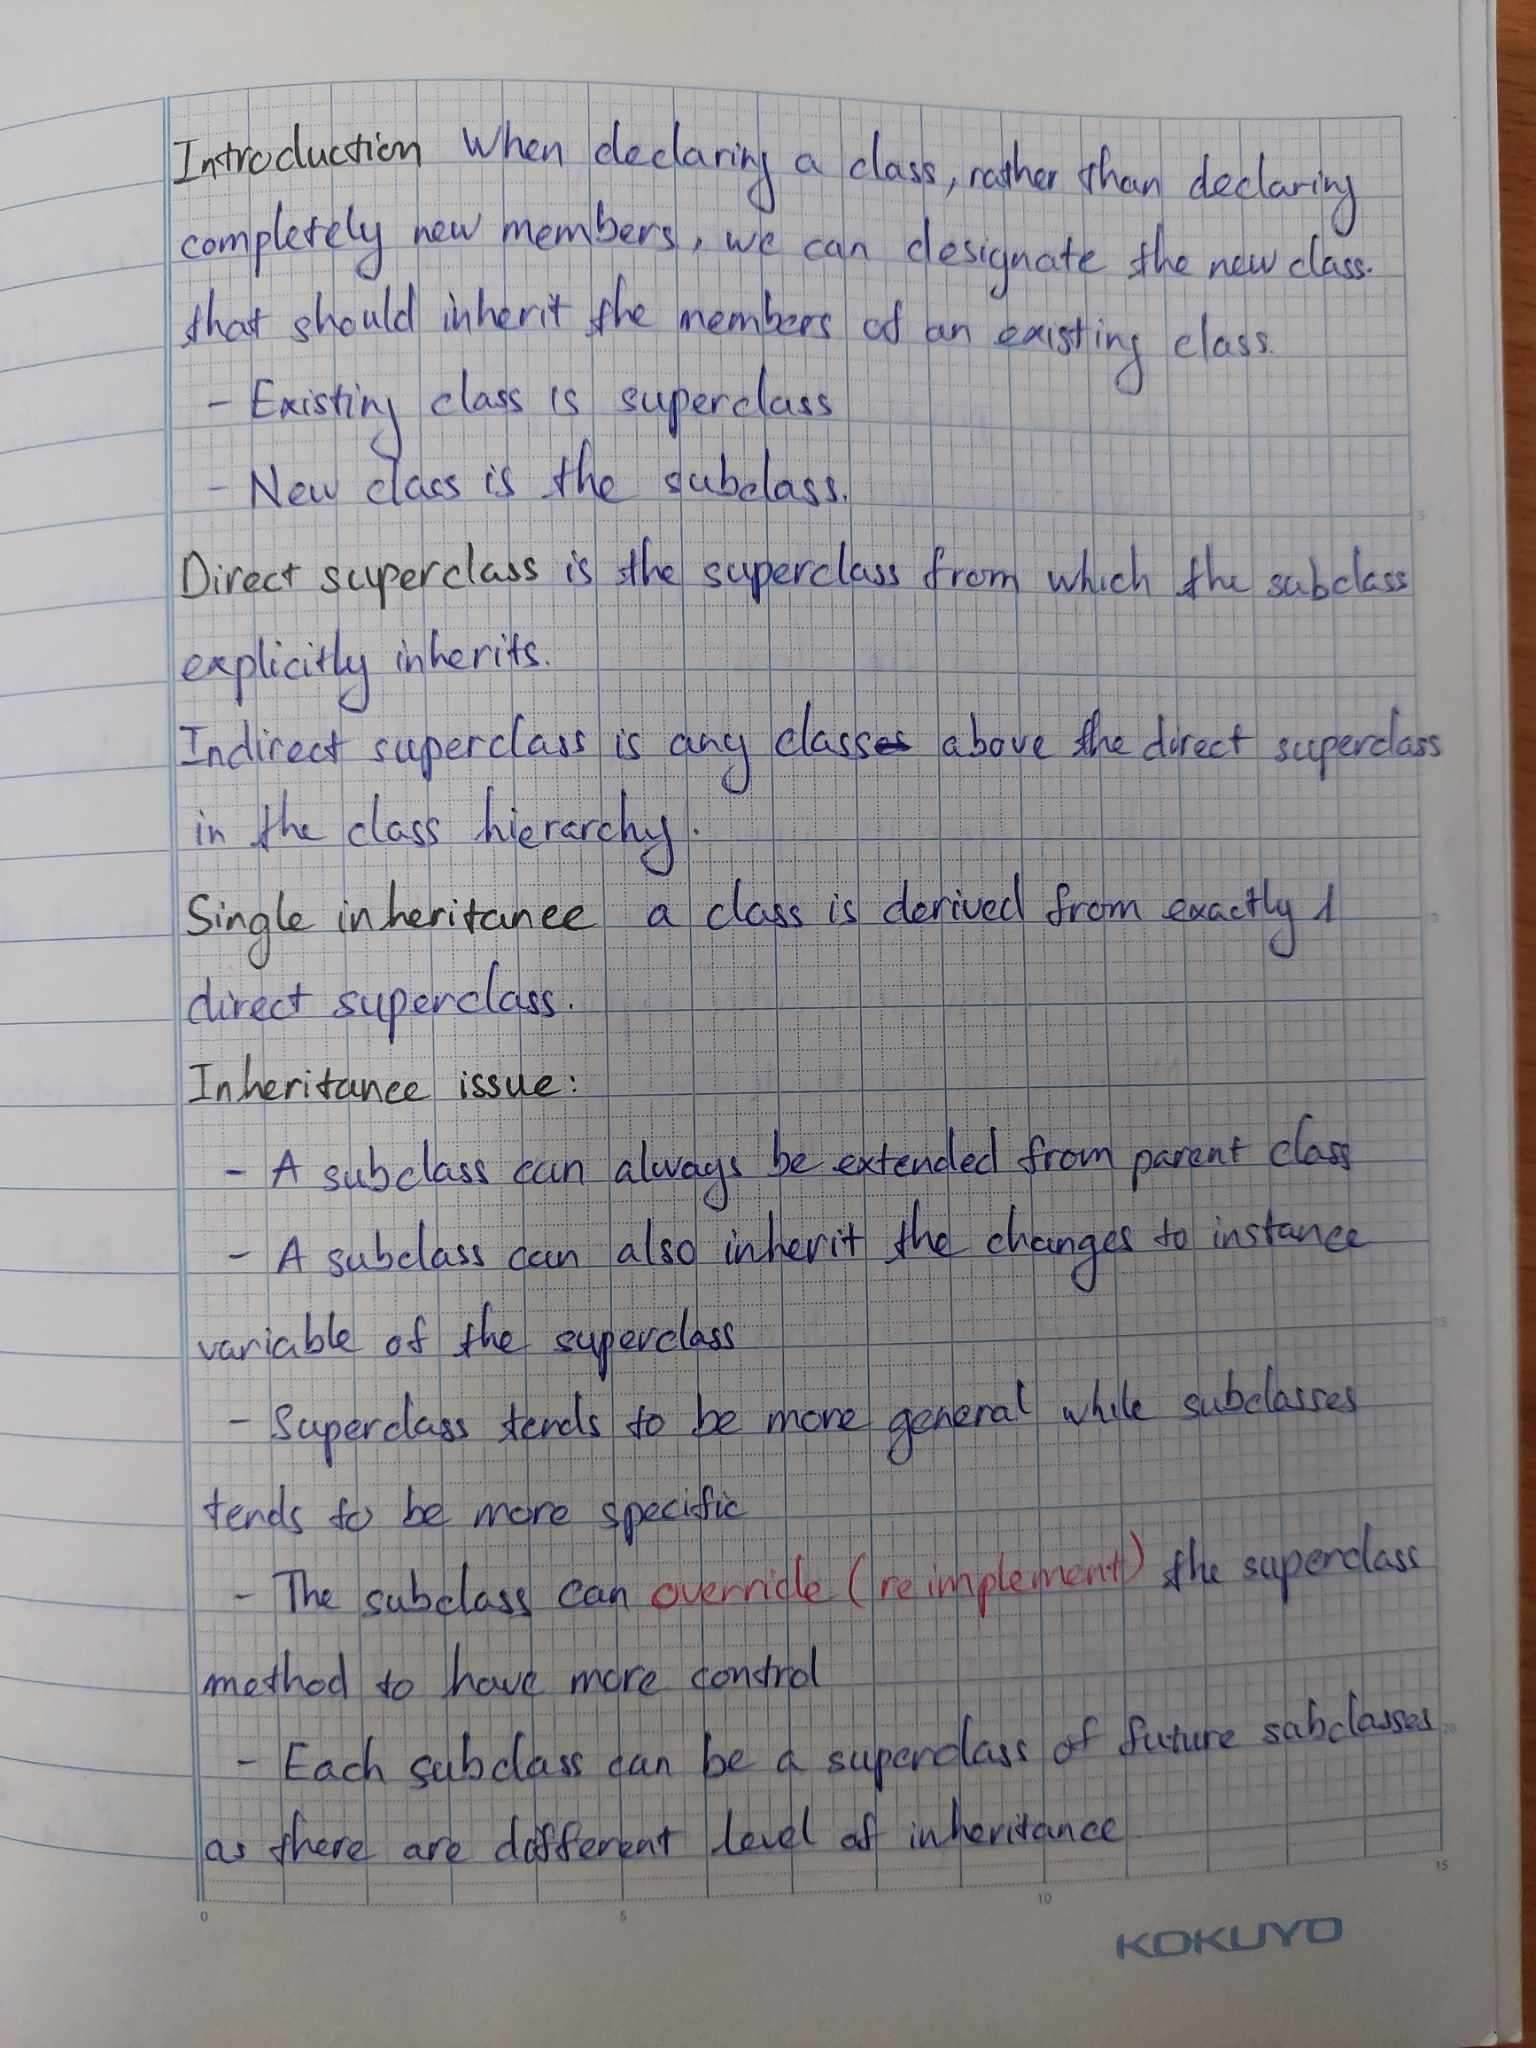 Introduction When declaring a class, rather than declaring
completely new members, we can designate the new class.
that should inherit the members of an existing class.
- Existing class is superclass
- New class is the subclass.
Direct superclass is the superclass from which the subclass
explicitly inherits.
Indirect superclass is any classes above the direct superclass
in the class hierarchy.
Single inheritance a class is derived from exactly 1
direct superclass.
Inheritance issue:
- A subclass can always be extended from parent class
- A subclass can also inherit the changes to instance
variable of the superclass
- Superclass tends to be more general while subclasses
tends to be more specific
- The subclass can override (reimplement) the superclass
method to have more control
- Each subclass can be a superclass of future subclasses
as there are different level of inheritance
0 5 10 15
KOKUYO